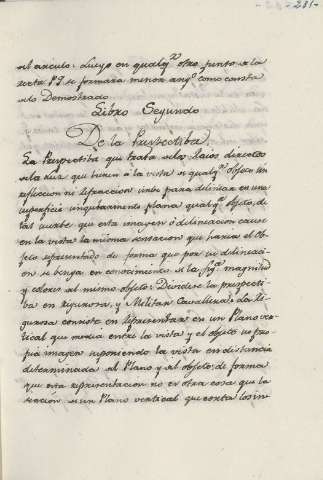 231
el arículo: Luego en qualqª otro punto de la
recta PQ se formara menor angº como consta
de lo Demostrado.
Libro Segundo
De la Perspectiba
La Perspectiba que trata de los Raios directos
de la Luz que bienen a la vista de qualqª objeto sin
reflecion ni refraccion sirve para delinear en una
superficie singularmente plana qualqª objeto, de
tal suerte que esta imagen ó delineacion cause
en la vista la misma sensacion que haria el Ob-
jeto representado de forma que por su delineaci-
on se benga en conocimiento de la figª magnitud
y colores del mismo objeto: Dividese la perspecti-
ba en rigurosa, y Militar Cavallera: La Ri-
gurosa consiste en representar en un Plano ver-
tical que media entre la vista y el objeto su pro-
pia imagen suponiendo la vista en distancia
determinada al Plano y al objeto; de forma
que esta representacion no es otra cosa que la
seccion de un Plano vertical que corta los in-